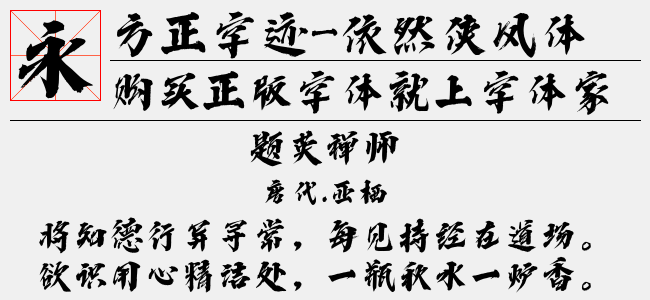 永
方正字迹-依然侠风体
购买正版字体就上字体家
题英禅师
唐代.亚栖
将知德行异寻常，每见持经在道场。
欲识用心精洁处，一瓶秋水一炉香。